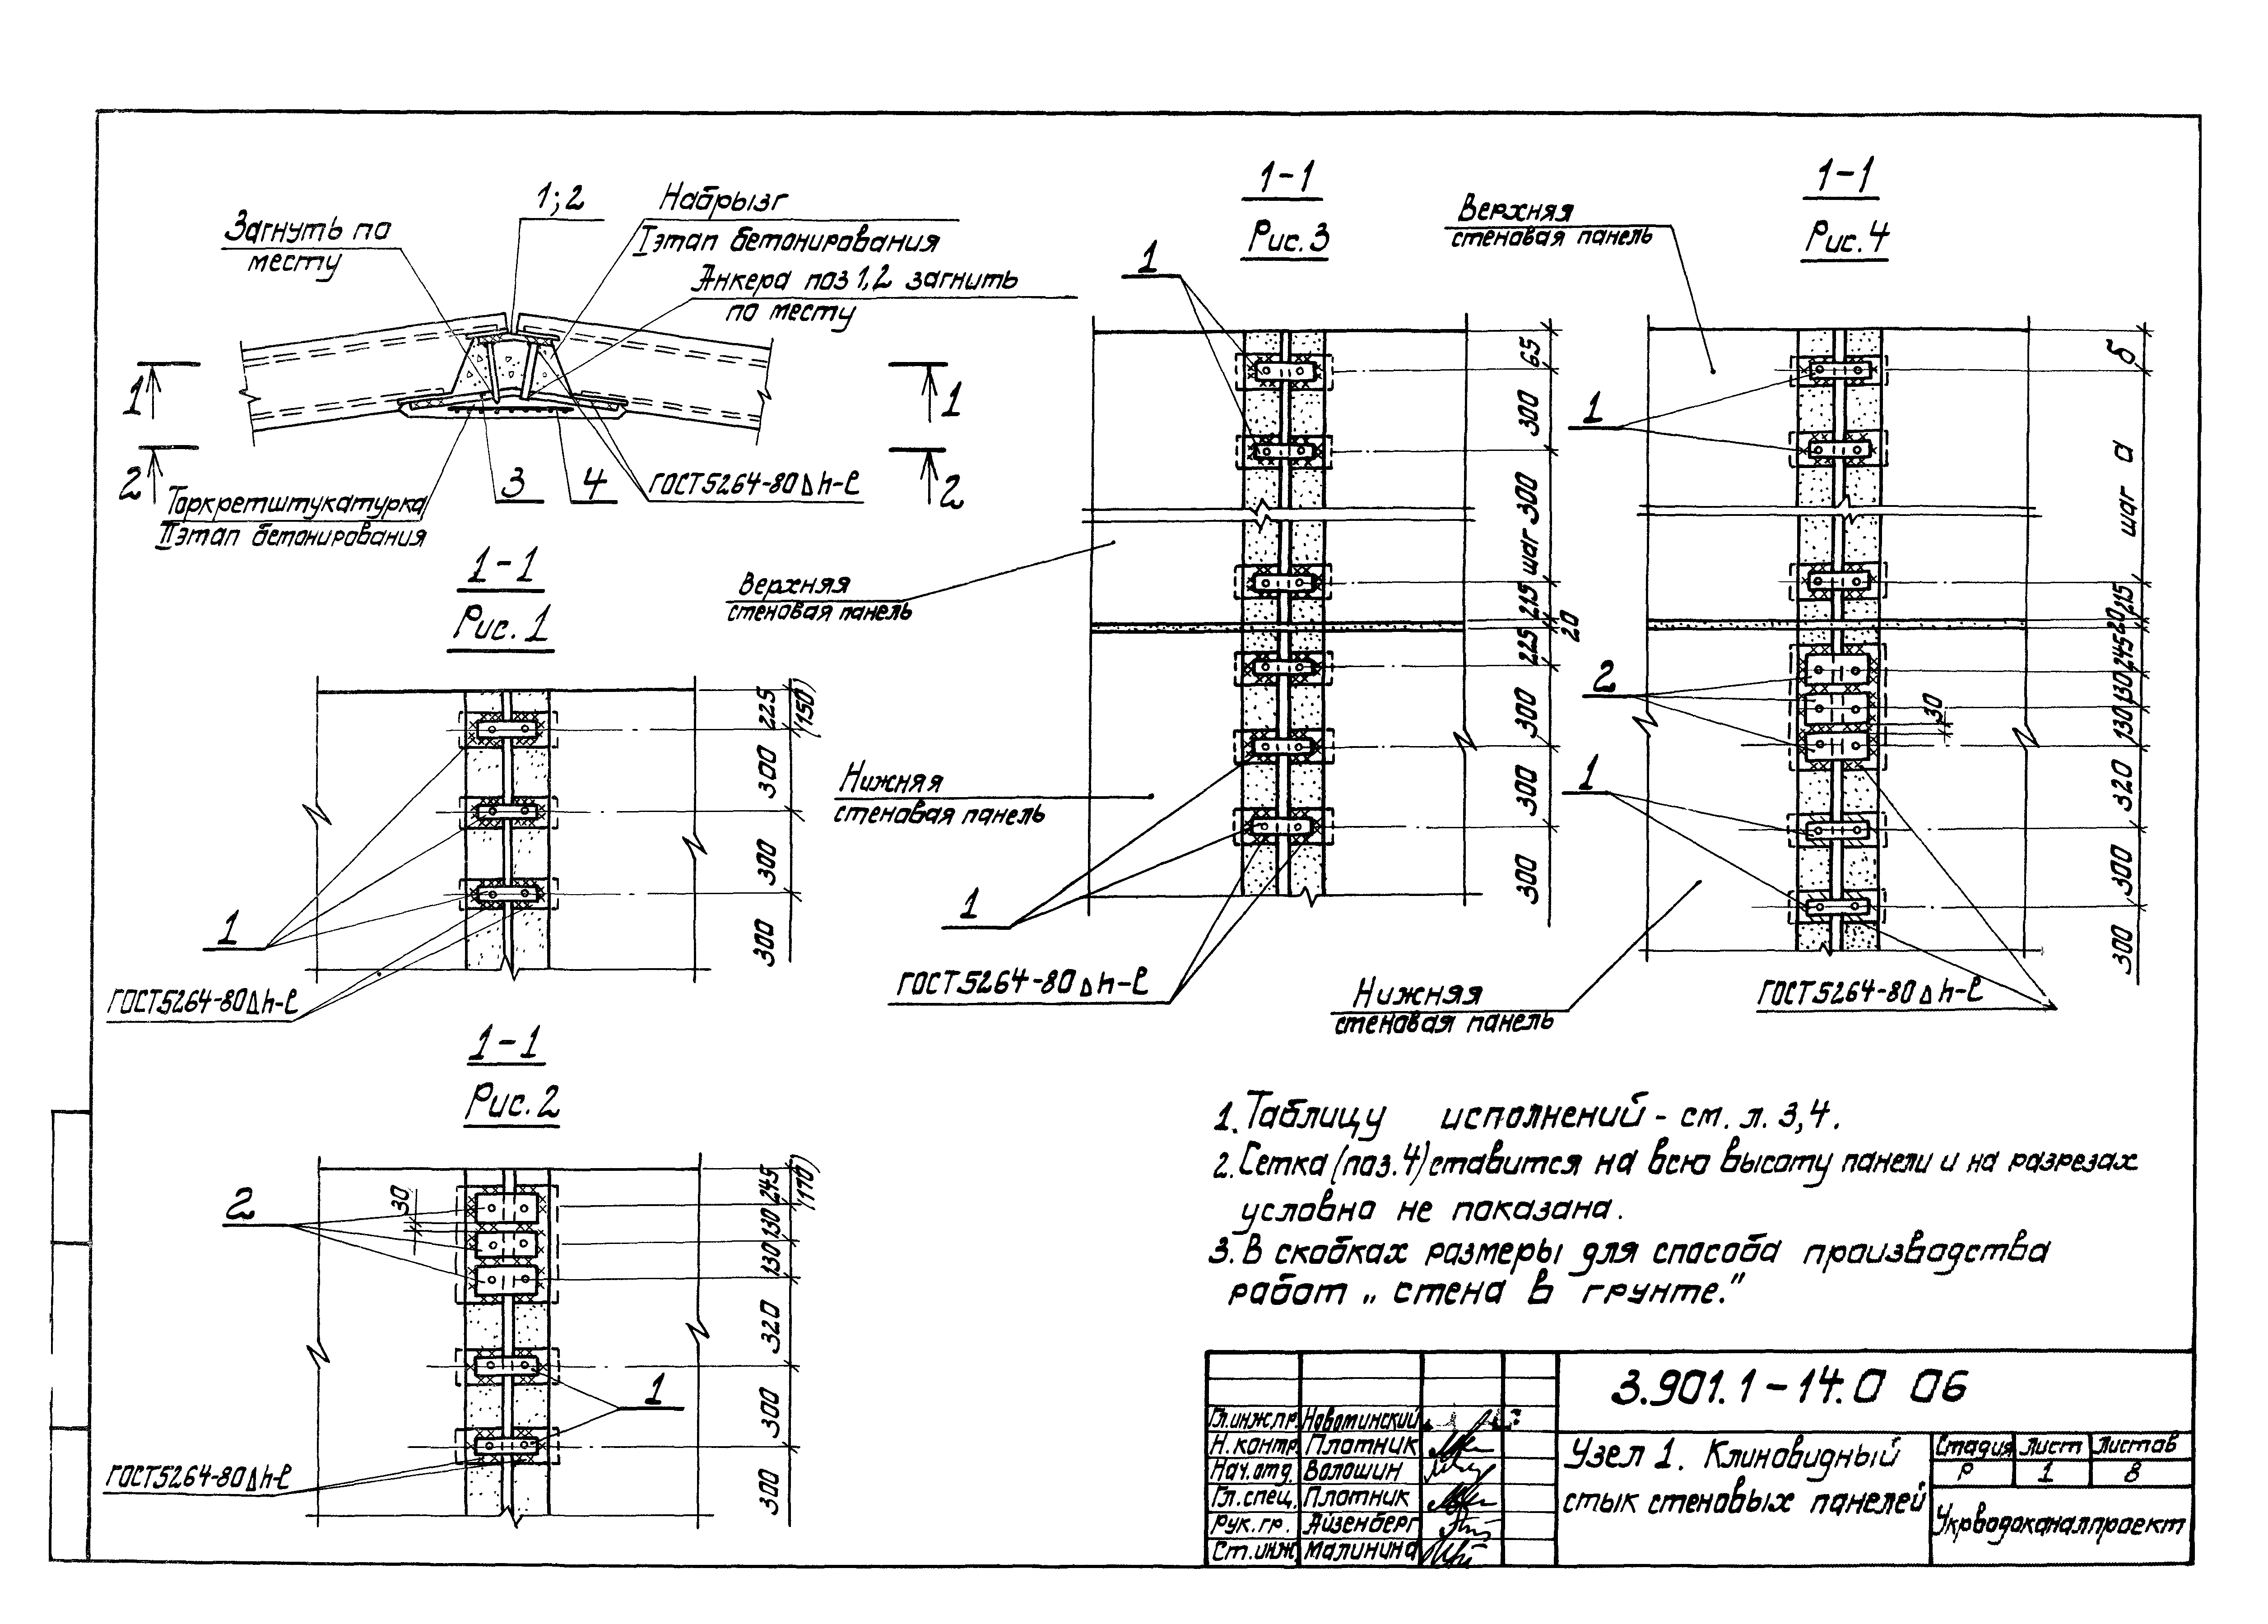 1; 2
Загнуть по
месту
Набрызг
I этап бетонирования
Анкера поз 1,2 загнить
по месту
1
1
2
2
3
4
ГОСТ 5264-80 Δh-ℓ
Торкретштукатурка
II этап бетонирования
1-1
Рис. 1
225
(150)
300
300
300
1
ГОСТ 5264-80 Δh-ℓ
1-1
Рис. 2
2
30
245
(170)
130
130
320
300
300
1
ГОСТ 5264-80 Δh-ℓ
1-1
Рис. 3
1
65
300
шаг 300
215
20
225
300
300
300
Верхняя
стеновая панель
Нижняя
стеновая панель
1
ГОСТ 5264-80 Δh-ℓ
1-1
Рис. 4
Верхняя
стеновая панель
1
б
шаг а
215
20
245
130
130
320
300
300
2
30
1
Нижняя
стеновая панель
ГОСТ 5264-80 Δh-ℓ
1. Таблицу исполнений - см. л. 3,4.
2. Сетка (поз. 4) ставится на всю высоту панели и на разрезах
условно не показана.
3. В скобках размеры для способа производства
работ „стена в грунте."
3.901.1-14.0 06
Гл.инж.пр. Новотинский
Н.контр. Плотник
Нач.отд. Волошин
Гл.спец. Плотник
Рук.гр. Айзенберг
Ст.инж Малинина
Узел 1. Клиновидный
стык стеновых панелей
Стадия Лист Листов
Р 1 8
Укрводоканалпроект